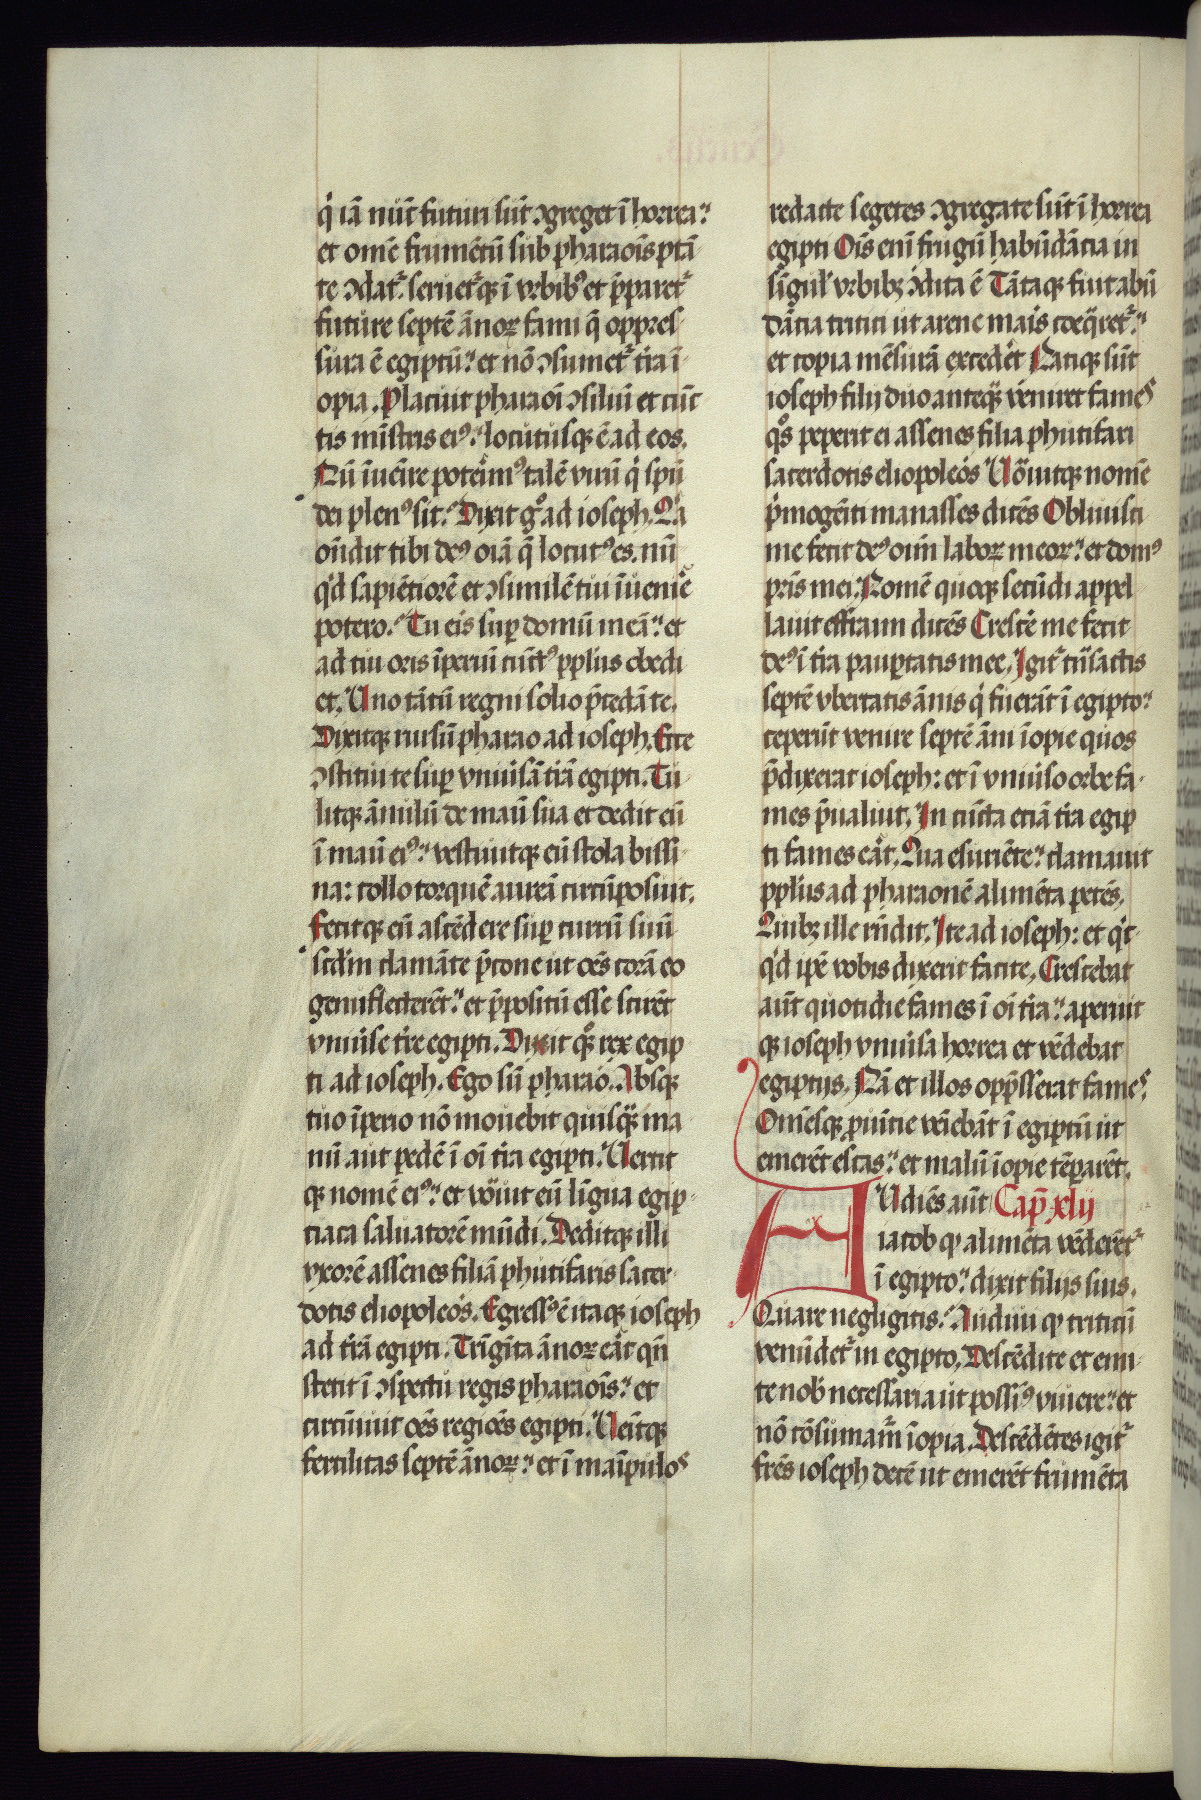 q̇ iā nūc̄ futuri sūt ꝯgreget ī horrea:
et omē frumētū sub pharaoīs ptā-
te ꝯdat᷑. seruet᷑qꝫ ī vrbibꝰ et p̄paret᷑
future septē ānoꝝ fami q̄ oppres-
sura ē egiptū: et nō ꝯsumet᷑ t̄ra ī-
opia. Placuit pharaoī ꝯsiliū et cūc
tis mīstris eiꝰ: locutusqꝫ ē ad eos.
Nū īueīre poteim̄ꝰ talē virū q̇ spū
dei plenꝰ sit. Dixit gͦ ad ioseph. Qa
on̄dit tibi deꝰ oīa q̄ locutꝰ es. nū
qd̛ sapiētiorē et ꝯsimilē tui īuenir̄e
potero. Tu eis suꝑ domū meā: et
ad tui oris īperiū cūctꝰ pplus obedi
et. Uno tātū regni solio p̄cedā te.
Dixitqꝫ rursū pharao ad ioseph. Ecce
ꝯstitui te suꝑ vniūsā t̄rā egipti. Tu-
litqꝫ ānulū de manū sua et dedit eū
ī manū eiꝰ: vestiuitqꝫ eū stola bissi-
na: collo torquē aureā circūposuit.
Fecitqꝫ eū ascēdere suꝑ currū suū
scdm̄ clamāte p̄cone ut oēs corā eo
genuflecterēt: et p̄positū esse scirēt
vniūse t̄re egipti. Dixit qͦꝫ rex egip
ti ad ioseph. Ego sū pharao. Absqꝫ
tuo īperio nō mouebit quisqꝫ̄ ma
nū aut pedē ī oī t̄ra egipti. Uertit
qꝫ nomē eiꝰ: et vocauit eū lingua egip-
tiaca saluatorē mūdi. Deditqꝫ illi
vxorē assenes filiā phutifaris sacer-
dotis eliopoleos. Egressꝰ ē itaqꝫ ioseph
ad t̄rā egipti. Trigīta ānoꝝ erāt qn̄
stetit ī ꝯspectu regis pharaoīs: et
circūiuit oēs regiōes egipti. Ueītqꝫ
fertilitas septē ānoꝝ: et ī manipulos
redacte segetes ꝯgregate sūt ī horrea
egipti Oīs enī frugū habūdātia in
sīgul̛ vrbibꝫ ꝯdita ē Tātaqꝫ fuit abū
dātia tritici ut arene maīs coeq̄ret᷑:
et copia mēsurā excederet Natiqꝫ sūt
ioseph filij duo anteqꝫ̄ veniret fames
qͦs peperit ei assenes filia phutifari
sacerdotis eliopoleos Uocauitqꝫ nomē
p̄mogēiti manasses dicēs Obliuisci
me fecit deꝰ oīm laboꝝ meoꝝ: et domꝰ
pr̄is mei. Nomē quoqꝫ secūdi appel
lauit effraim dicēs Crescē me fecit
deꝰ ī t̄ra paupertatis mee. Igit᷑ trāsactis
septē vbertatis ānis q̇ fuerāt ī egipto:
ceperūt venire septē āni īopie quos
p̄dixerat ioseph: et ī vniūso orbe fa-
mes p̄ualuit. In cūcta etiā t̄ra egip
ti fames erāt. Qua esuriēte: clamauit
pplus ad pharaonē alimēta petēs.
Quibꝫ ille rn̄dit. Ite ad ioseph: et q̇c-
qd̛ ipē vobis dixerit facite. Crescebat
aūt quotidie fames ī oī t̄ra: aperuit
qꝫ ioseph vniūsa horrea et vēdebat
egiptijs. Nā et illos opp̄sserat fames.
Omēsqꝫ prouīcie veniebāt ī egiptū ut
emerēt escas: et malū īopie tēparēt.
AUdiēs aūt Cap̄ xlij
iacob qꝙ alimēta vēderēt᷑
ī egipto: dixit filijs suis.
Quare negligitis. Audiui qꝙ triticū
venūdet᷑ in egipto. Descēdite et emi-
te nob̛ necessaria ut possimꝰ viuere: et
nō cōsumam̄ īopia. Descēdētes igit᷑
fr̄es ioseph decē ut emerēt frumēta